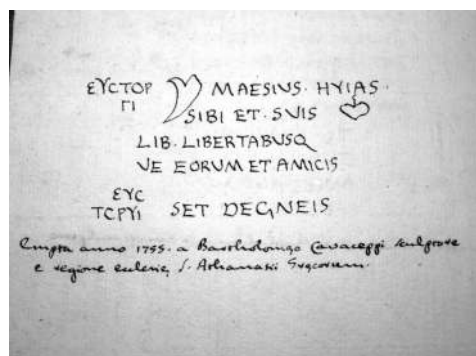 ΕΥCΤΟΡ MAESIVS · HYIAS ·
ΓΙ SIBI ET · SVIS
LIB · LIBERTABUSQ
VE EORUM ET AMICIS
ΕΥC
ΤCΡΥΙ SET DEGNEIS
Empta anno 1755. a Bartholomęo Cavaceppi sculptore
e regione ecclesię S. Athanasii Gręcorum.